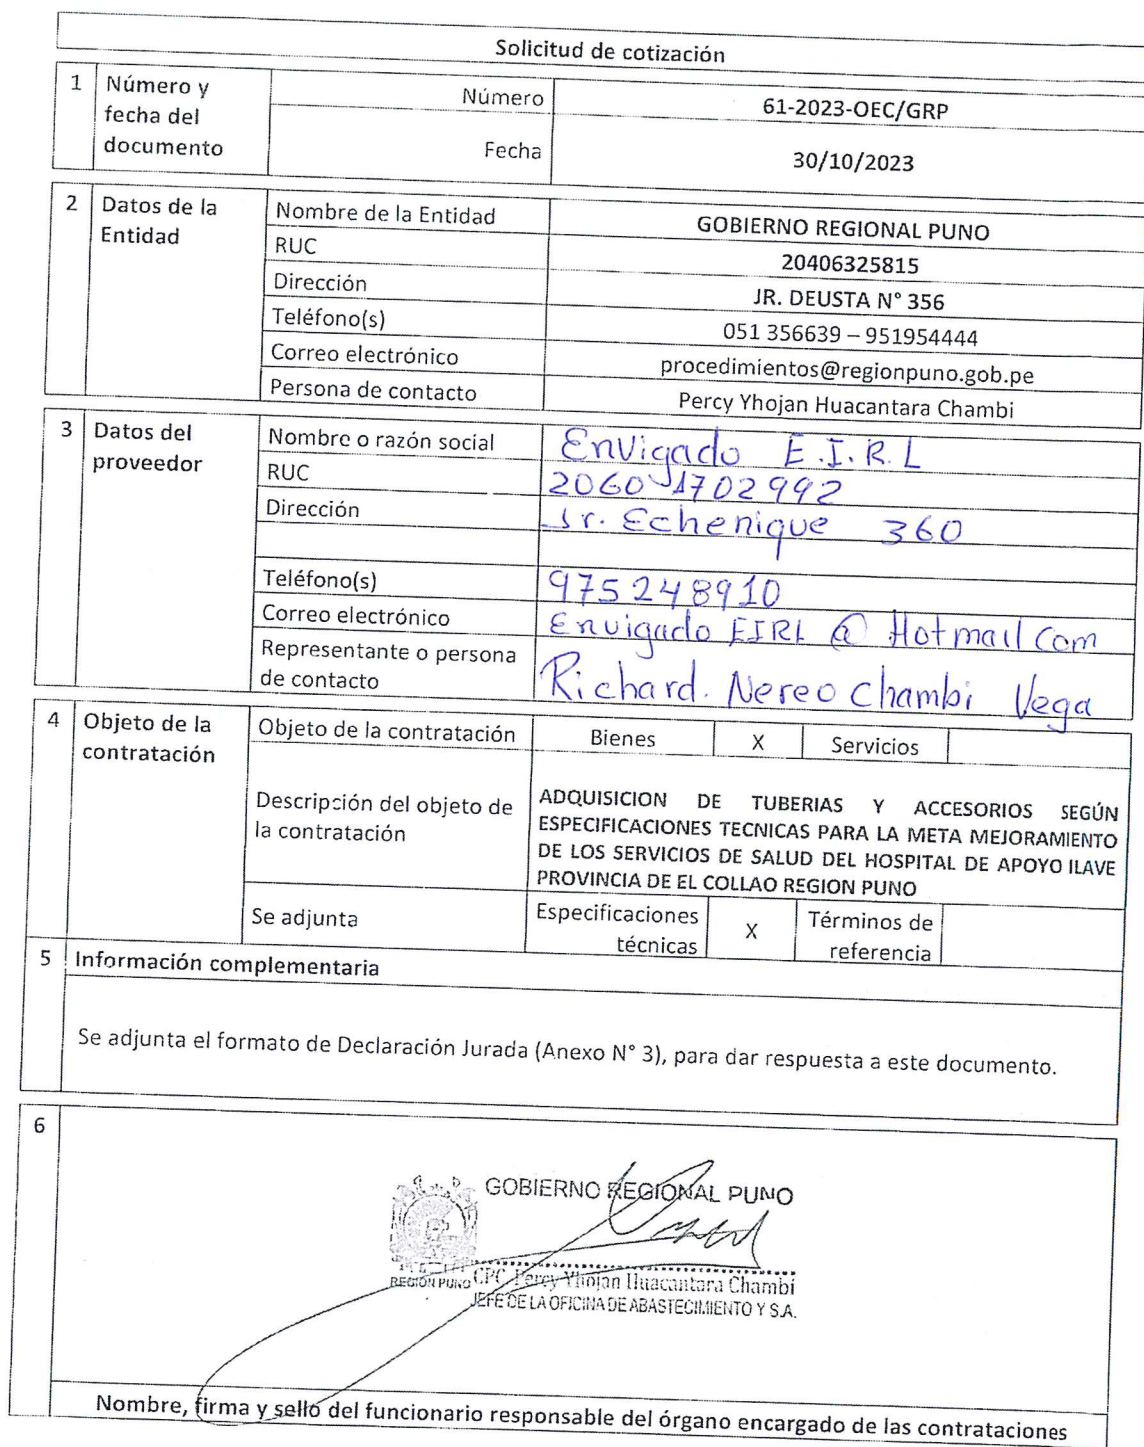 Solicitud de cotización
1 Número y fecha del documento
Número 61-2023-OEC/GRP
Fecha 30/10/2023
2 Datos de la Entidad
Nombre de la Entidad GOBIERNO REGIONAL PUNO
RUC 20406325815
Dirección JR. DEUSTA N° 356
Teléfono(s) 051 356639 – 951954444
Correo electrónico procedimientos@regionpuno.gob.pe
Persona de contacto Percy Yhojan Huacantara Chambi
3 Datos del proveedor
Nombre o razón social Envigado E.I.R.L
RUC 20601702992
Dirección Jr. Echenique 360
Teléfono(s) 975248910
Correo electrónico Envigado EIRL @ Hotmail Com
Representante o persona de contacto Richard. Nereo Chambi Vega
4 Objeto de la contratación
Objeto de la contratación Bienes X Servicios
Descripción del objeto de la contratación
ADQUISICION DE TUBERIAS Y ACCESORIOS SEGÚN
ESPECIFICACIONES TECNICAS PARA LA META MEJORAMIENTO
DE LOS SERVICIOS DE SALUD DEL HOSPITAL DE APOYO ILAVE
PROVINCIA DE EL COLLAO REGION PUNO
Se adjunta Especificaciones técnicas X Términos de referencia
5 Información complementaria
Se adjunta el formato de Declaración Jurada (Anexo N° 3), para dar respuesta a este documento.
6
GOBIERNO REGIONAL PUNO
REGIÓN PUNO
CPC. Percy Yhojan Huacantara Chambi
JEFE DE LA OFICINA DE ABASTECIMIENTO Y S.A.
Nombre, firma y sello del funcionario responsable del órgano encargado de las contrataciones